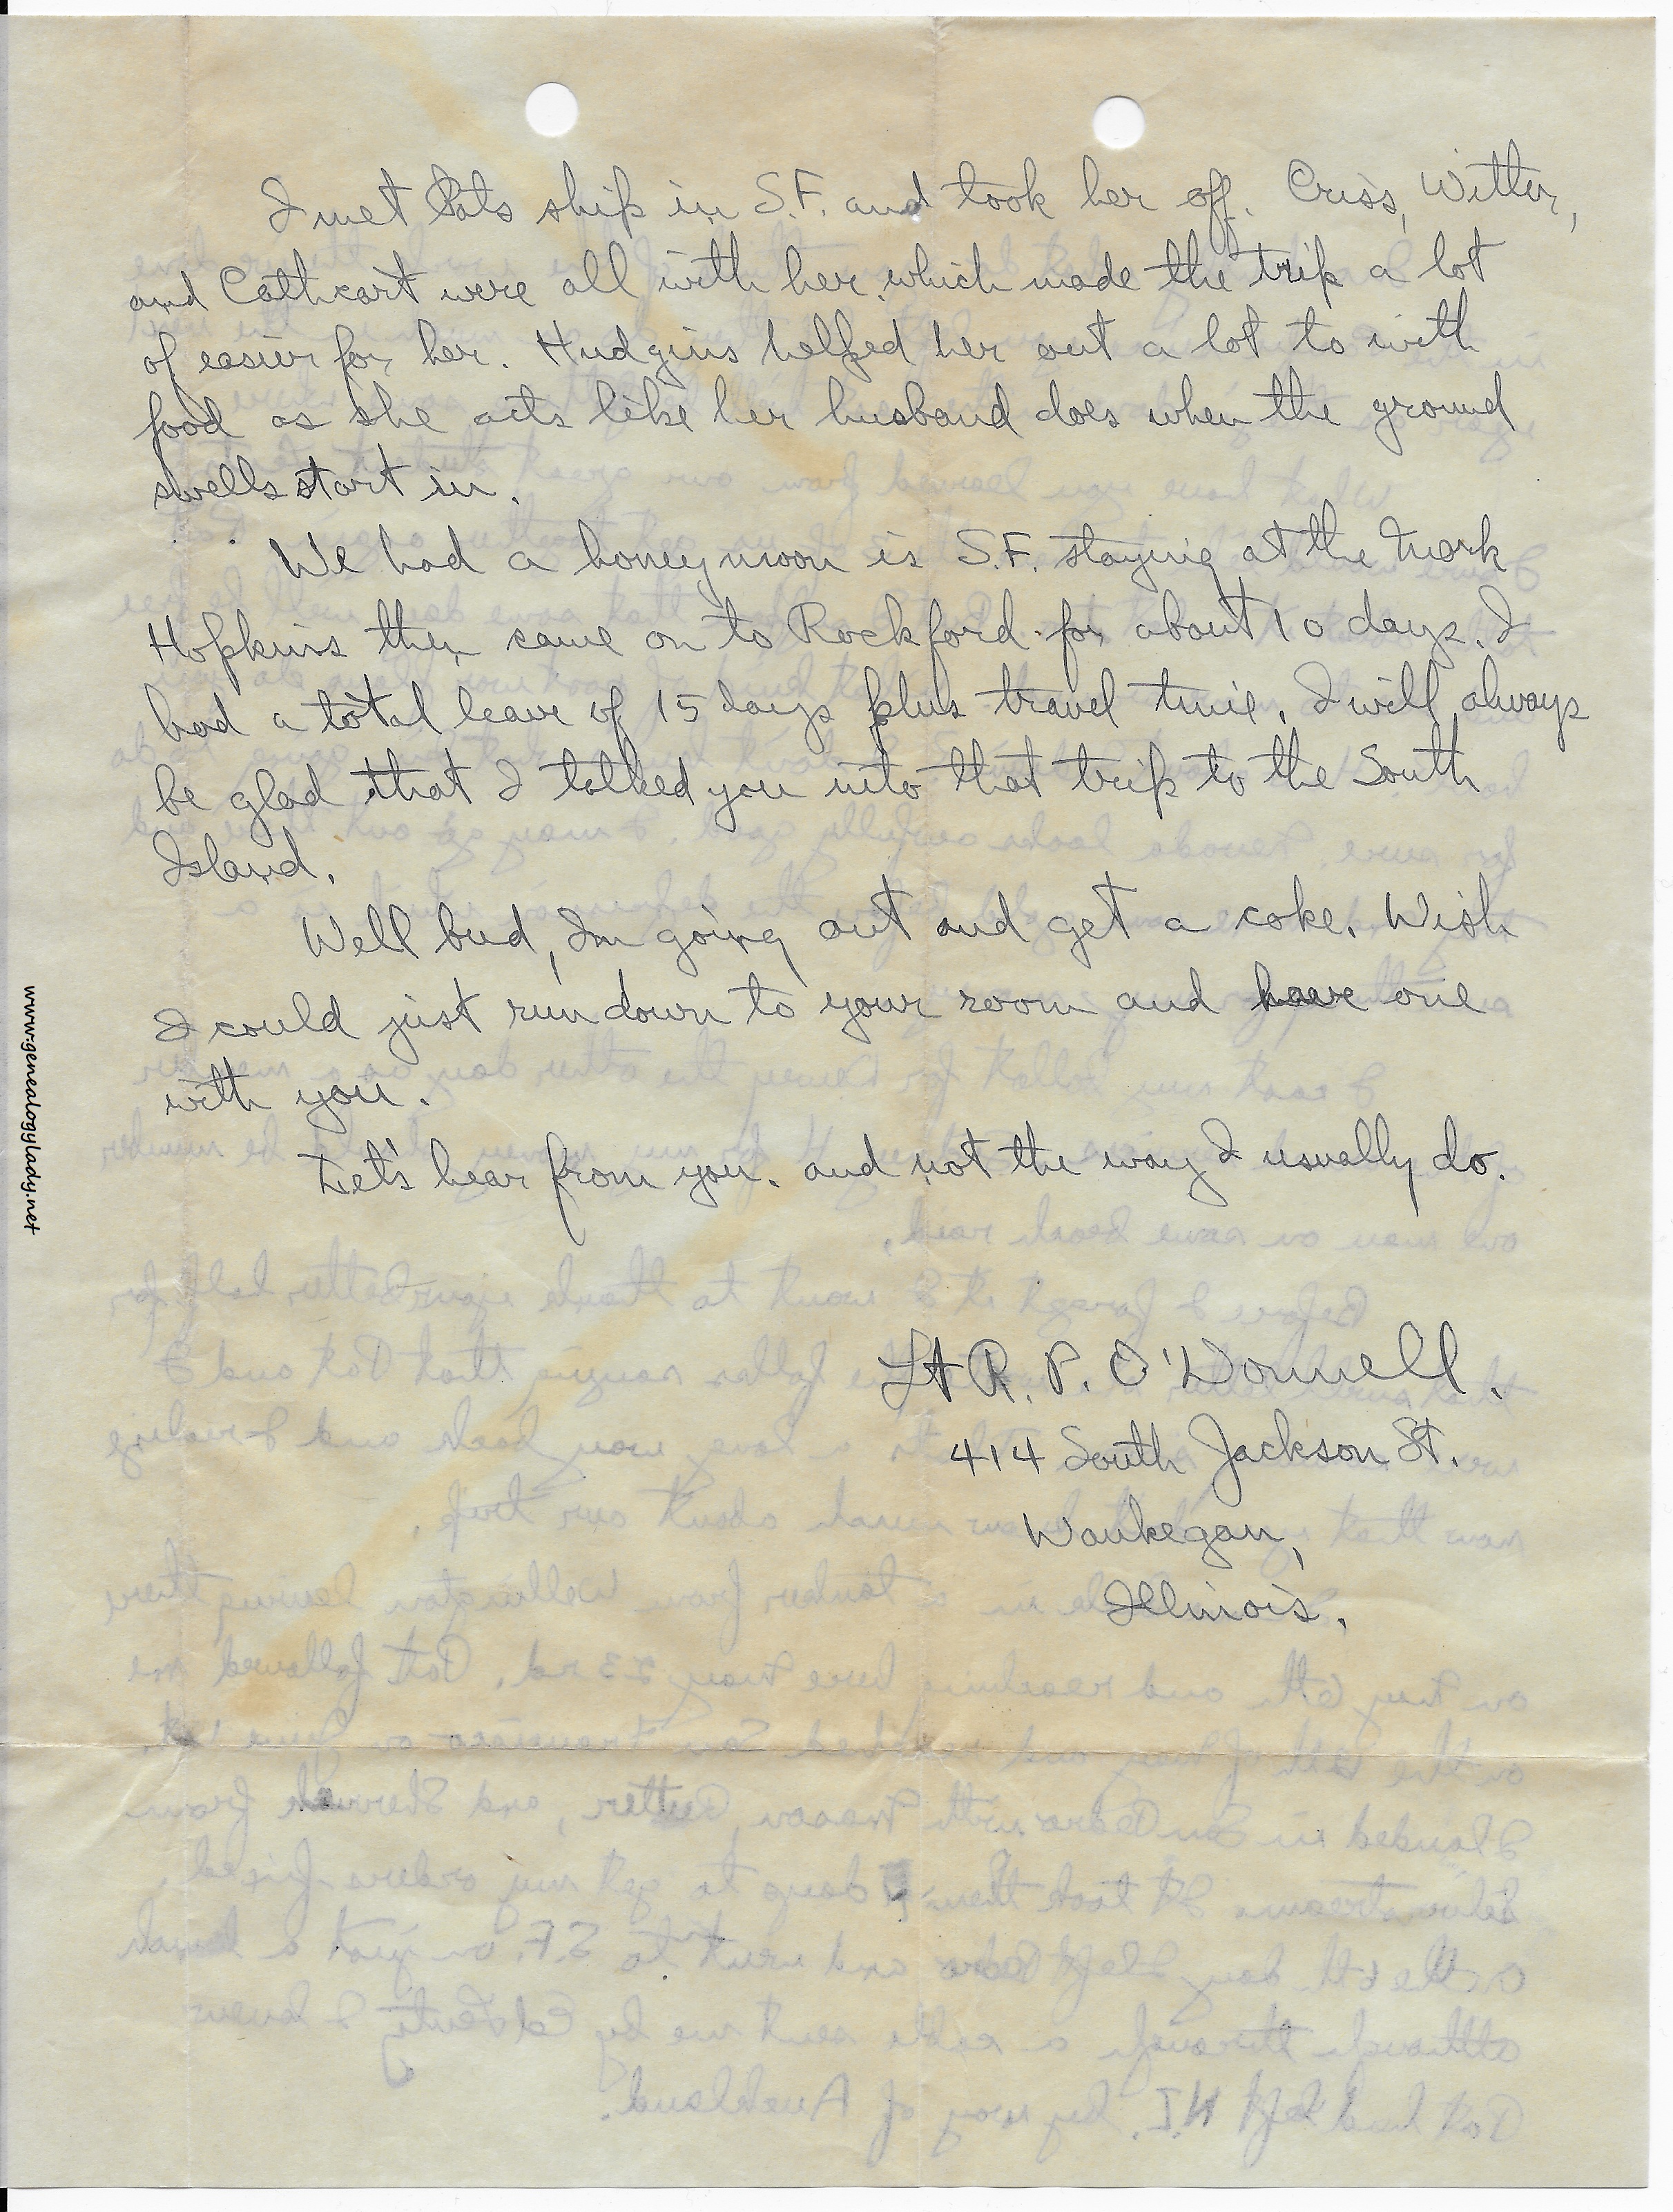 I met Pats ship in S.F. and took her off. Criss, Witter,
and Cathcart were all with her, which made the trip a lot
of easier for her. Hudgins helped her out a lot to with
food as she acts like her husband does when the ground
swells start in.
We had a honeymoon is S.F. staying at the Mark
Hopkins then came on to Rockford for about 10 days. I
had a total leave of 15 days plus travel time. I will always
be glad that I talked you into that trip to the South
Island.
Well bud, Im going out and get a coke. Wish
I could just run down to your room and have one
with you.
Let's hear from you. and not the way I usually do.
Lt R. P. O'Donnell.
414 South Jackson St.
Waukegan,
Illinois.
www.genealogylady.net